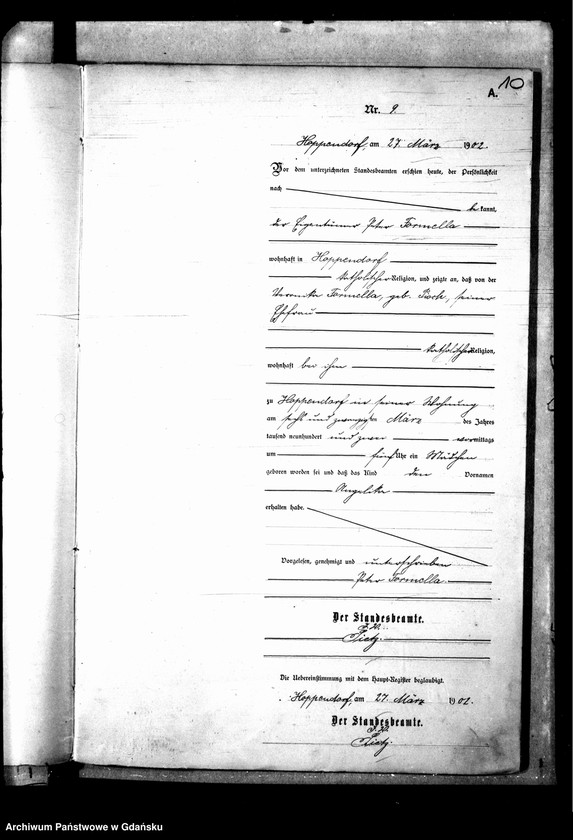 A.
10
Nr. 9.
Hoppendorf, am 27. März 1902.
Vor dem unterzeichneten Standesbeamten erschien heute, der Persönlichkeit
nach
be kannt,
der Eigentümer Peter Formella
wohnhaft in Hoppendorf
katholischer Religion, und zeigte an, daß von der
Veronika Formella, geb. Pioch, seiner
Ehefrau
katholischer Religion,
wohnhaft bei ihm
zu Hoppendorf in seiner Wohnung
am sechs und zwanzigsten März des Jahres
tausend neunhundert und zwei vormittags
um fünf Uhr ein Mädchen
geboren worden sei und daß das Kind den Vornamen
Angelika
erhalten habe.
Vorgelesen, genehmigt und unterschrieben
Peter Formella.
Der Standesbeamte.
Tietz.
Die Uebereinstimmung mit dem Haupt-Register beglaubigt.
Hoppendorf, am 27. März 1902.
Der Standesbeamte.
Tietz.
Archiwum Państwowe w Gdańsku